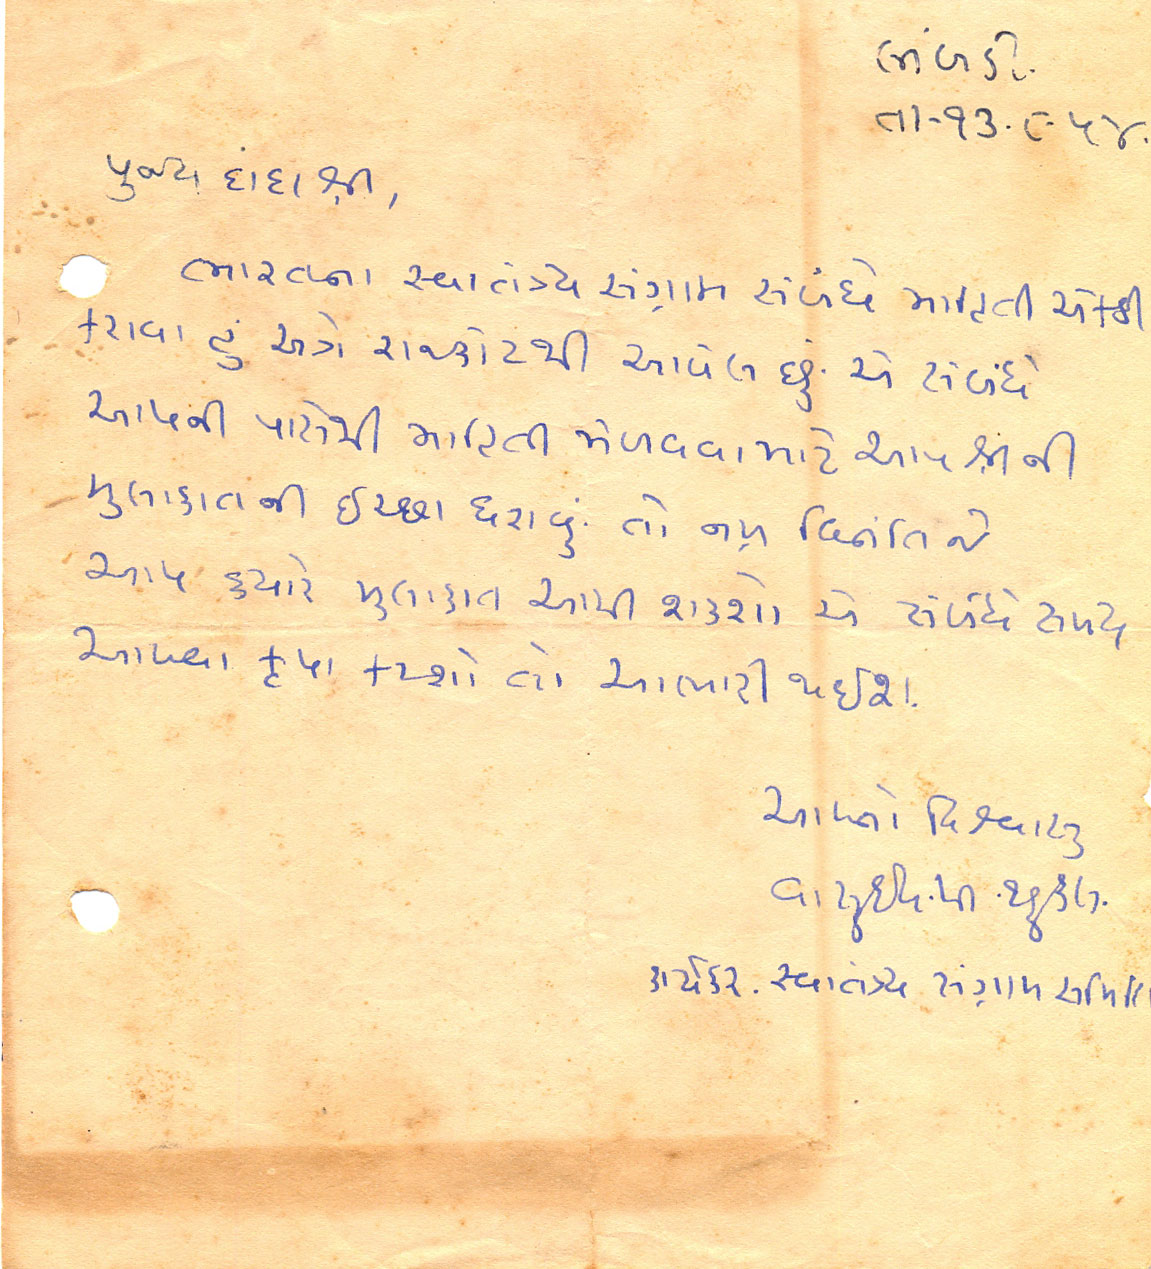 લીંબડી.
તા-૧૩.૮-૫૪.
પુજ્ય દાદાશ્રી,
ભારતના સ્વાતંત્ર્ય સંગ્રામ સંબંધે માહિતી એકઠી
કરાવા હું અત્રે રાજકોટથી આવેલ છું. એ સંબંધે
આપની પાસેથી માહિતી મેળવવા માટે આપશ્રીની
મુલાકાતની ઈચ્છા ધરાવું. તો નમ્ર વિનંતિ જે
આપ ક્યારે મુલાકાત આપી શકશો એ સંબંધે સમય
આપવા કૃપા કરશો તો આભારી થઈશ.
આપનો વિશ્વાસુ
શુકલ.
કાર્યકર. સ્વાતંત્ર્ય સંગ્રામ સમિતિ